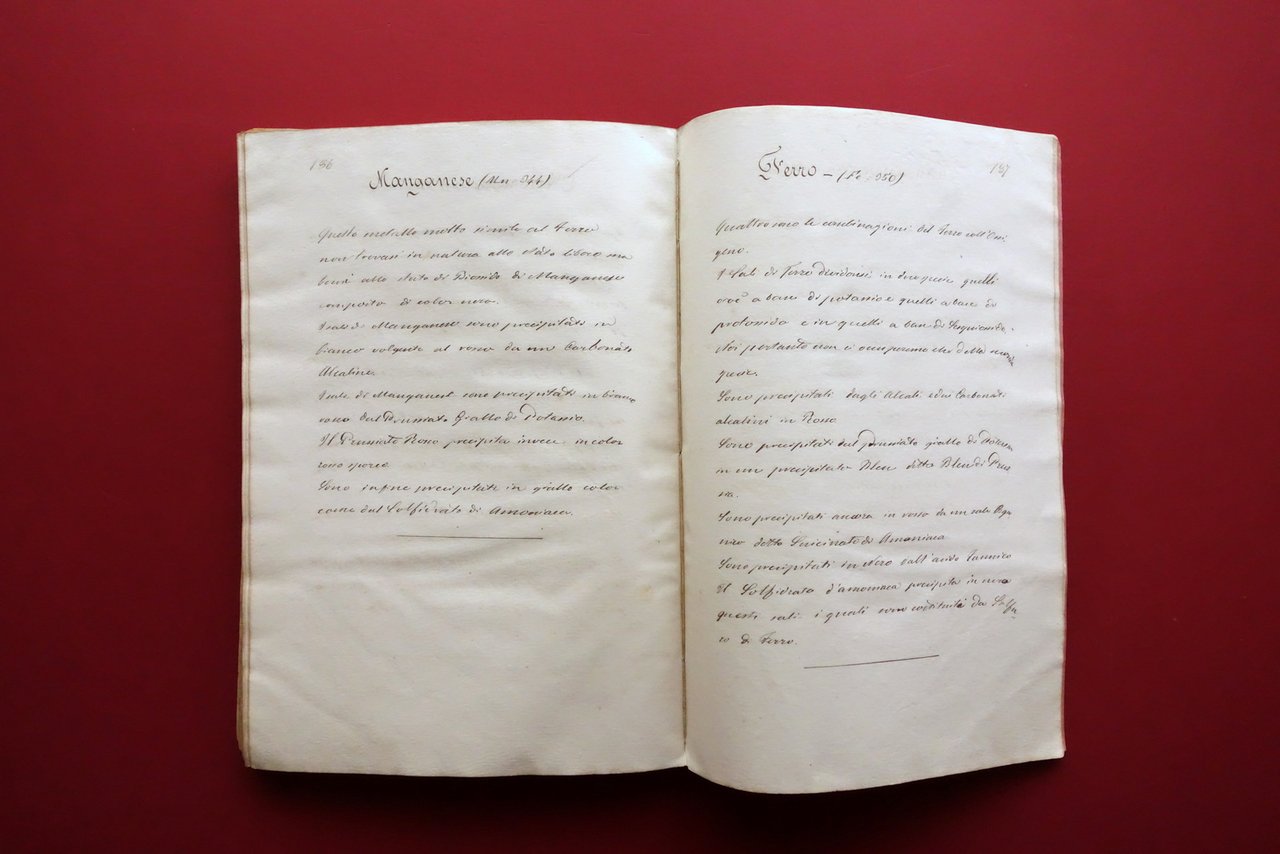 186
Manganese (Mn 344)
Questo metallo molto simile al Ferro
non trovasi in natura allo stato libero ma
bensì allo stato di Biossido di Manganese
composto di color nero.
I sali di Manganese sono precipitati in
bianco volgente al rosso da un Carbonato
Alcalino.
I sali di Manganese sono precipitati in bianco
roseo dal Prussiato Giallo di Potassio.
Il Prussiato Rosso precipita invece in color
rosso sporco.
Sono infine precipitati in giallo color
carne dal Solfidrato di Amoniaca.
187
Ferro - (Fe 350)
Quattro sono le combinazioni del Ferro coll'Ossi
geno.
I Sali di Ferro dividonsi in due specie quelli
cioè a base di protossido e quelli a base di
protossido e in quelli a base di Sesquiossido.
Noi pertanto non ci occuperemo che delle seconde
specie.
Sono precipitati dagli Alcali e dai Carbonati
alcalini in Rosso
Sono precipitati dal prussiato giallo di Potassio
in un precipitato Bleu detto Bleu di Prus
sia.
Sono precipitati ancora in rosso da un sale Orga
nico detto Succinato di Amoniaca
Sono precipitati in Nero dall'acido Tannico
Il Solfidrato d'amoniaca precipita in nero
questi sali i quali sono costituiti da Solfu-
ro di Ferro.